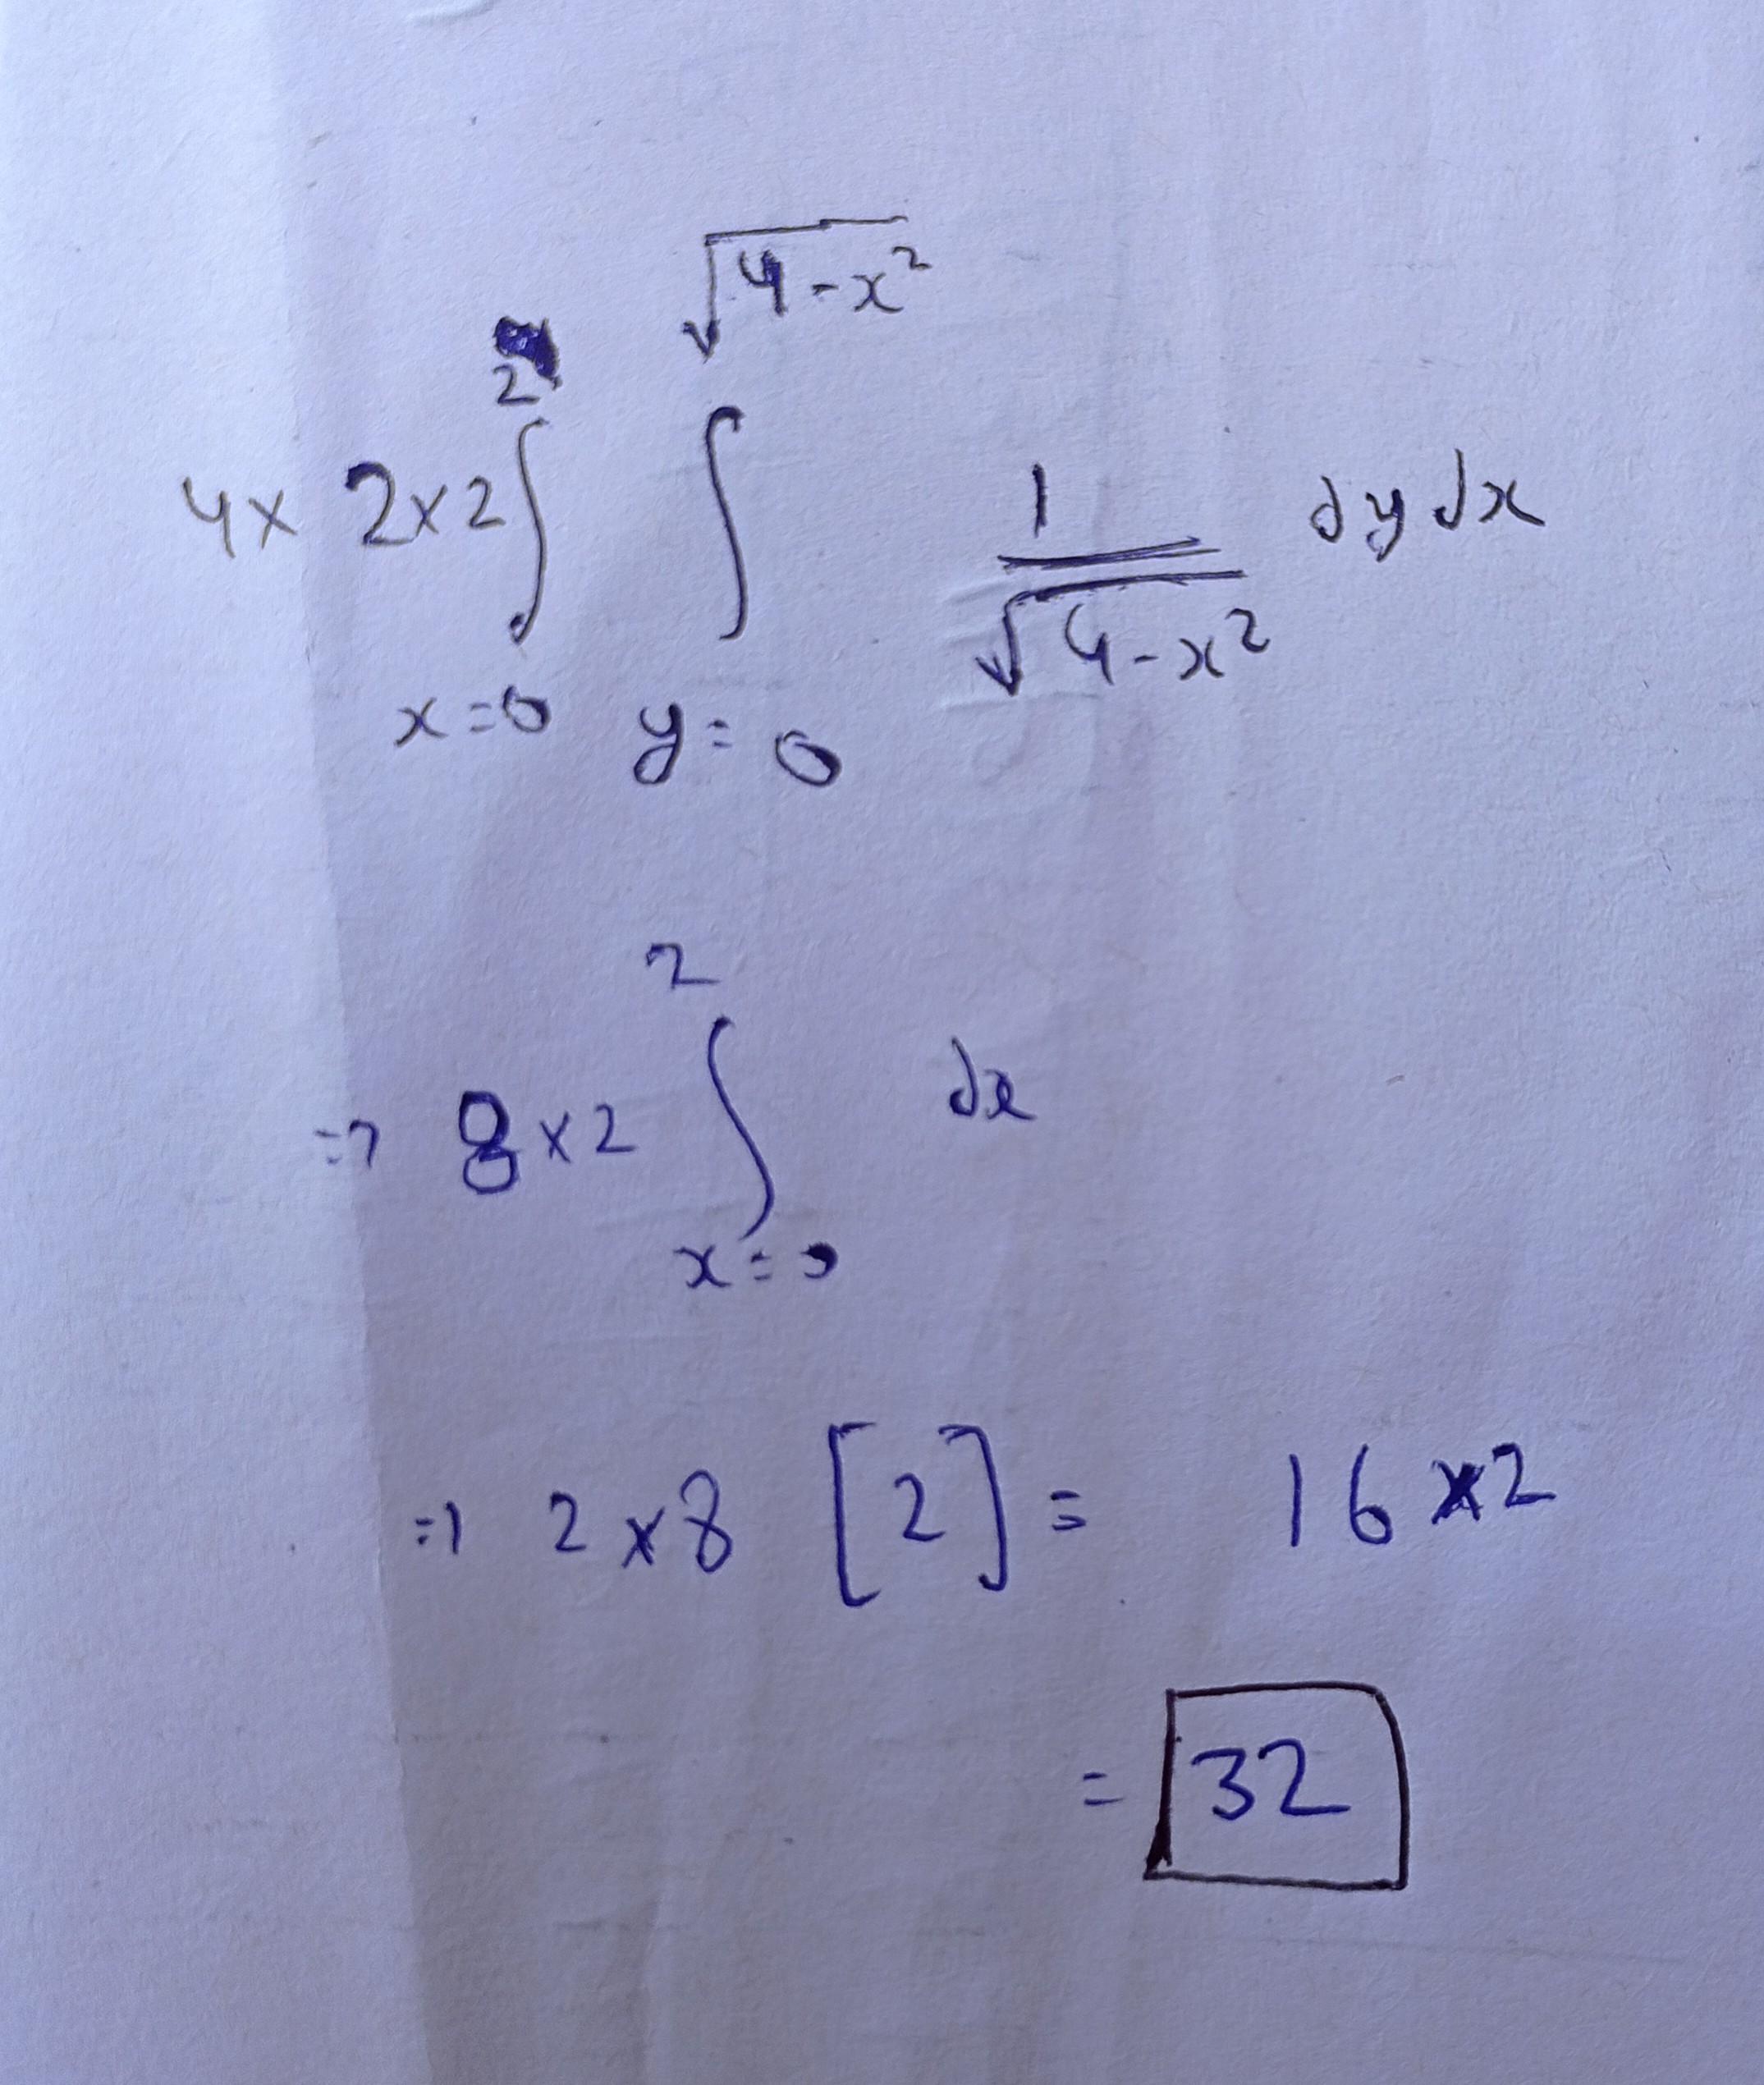 4x 2x2 ∫_{x=0}^{2} ∫_{y=0}^{√(4-x²)} 1/√(4-x²) dy dx
=> 8x2 ∫_{x=0}^{2} dx
=> 2x8 [2] = 16x2
= 32